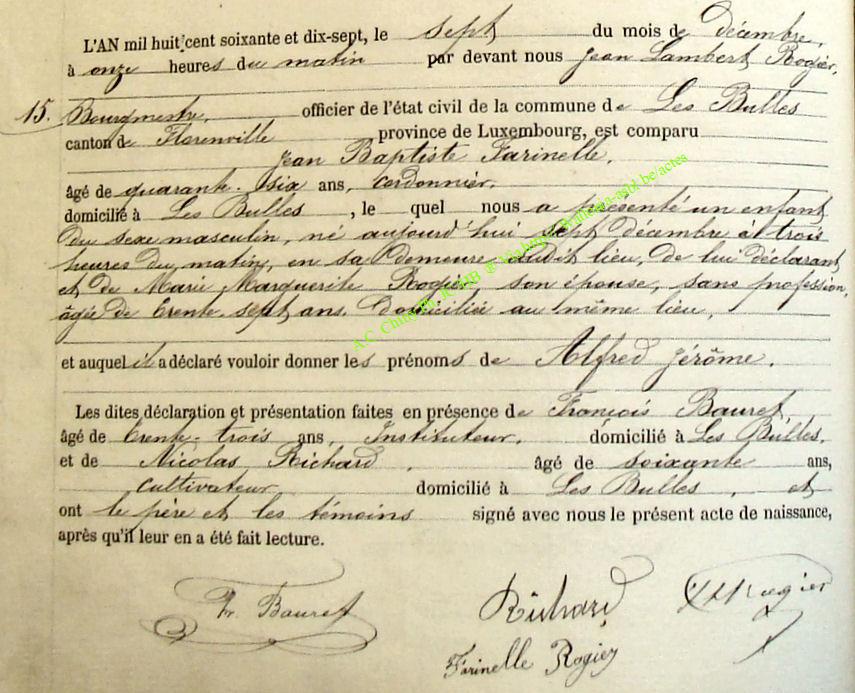 L'AN mil huit cent soixante et dix-sept, le sept du mois de décembre,
à onze heures du matin par devant nous Jean Lambert Rogier,
15. Bourgmestre, officier de l'état civil de la commune de Les Bulles
canton de Florenville province de Luxembourg, est comparu
Jean Baptiste Farinelle,
âgé de quarante-six ans, cordonnier,
domicilié à Les Bulles, le quel nous a présenté un enfant
du sexe masculin, né aujourd'hui sept décembre à trois
heures du matin, en sa demeure audit lieu, de lui déclarant
et de Marie Marguerite Rogier, son épouse, sans profession,
âgée de trente sept ans, domiciliée au même lieu,
et auquel il a déclaré vouloir donner les prénoms de Alfred Jérôme.
Les dites déclaration et présentation faites en présence de François Bauret,
âgé de trente-trois ans, Instituteur, domicilié à Les Bulles,
et de Nicolas Richard, âgé de soixante ans,
cultivateur domicilié à Les Bulles, et
ont le père et les témoins signé avec nous le présent acte de naissance,
après qu'il leur en a été fait lecture.
Fr. Bauret Richard Rogier
Farinelle Rogier